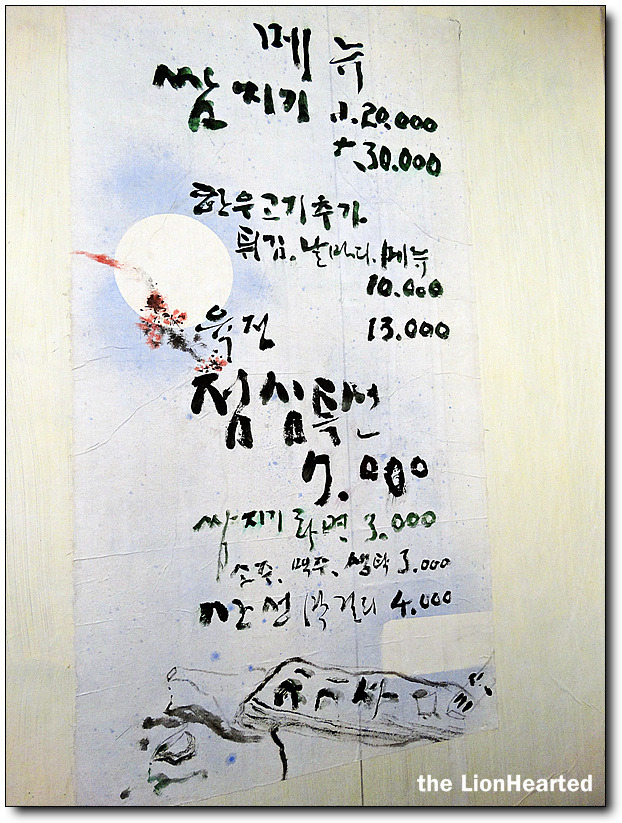 메뉴
쌈지기 小.20.000
大.30.000
한우고기추가
튀김.날마다.메뉴
10.000
육전 13.000
점심특선
7.000
쌈지기라면 3.000
소주, 맥주, 생탁 3.000
산성막걸리 4.000
the LionHearted